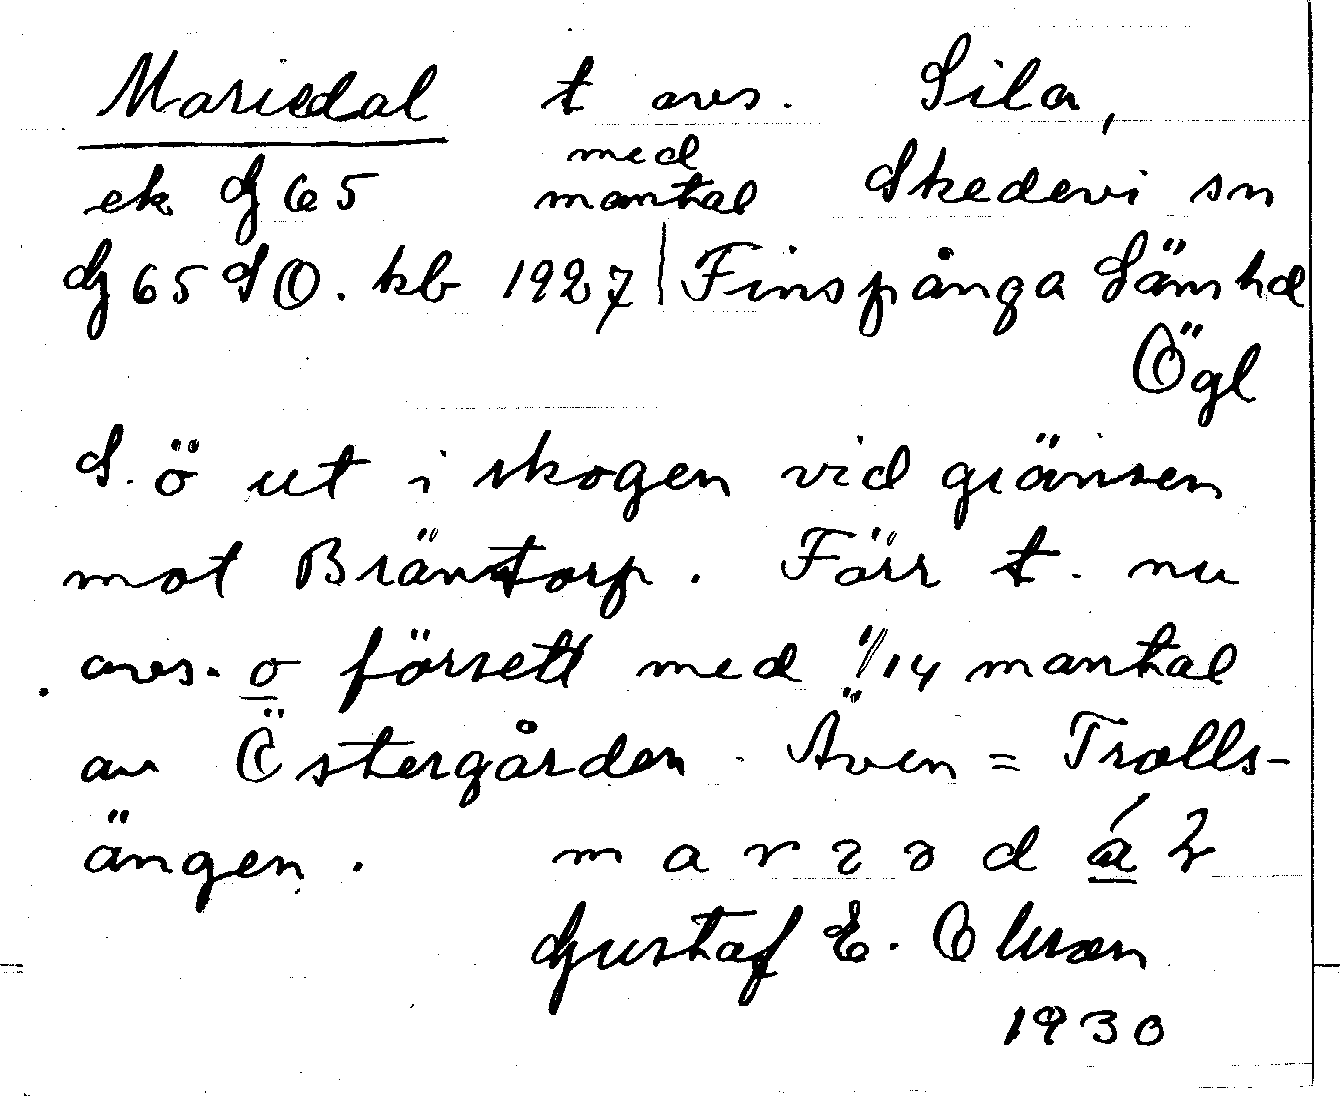 Mariedal t avs. Sila,
ek G 65 med mantal Skedevi sn
G 65 SO. kb 1927 | Finspånga läns hd
Ögl
S. ö ut i skogen vid gränsen
mot Bräntorp. Förr t. nu
avs. o försett med 1/14 mantal
av Östergården. Även = Trolls-
ängen. m a r
Gustaf E. Olsson
1930